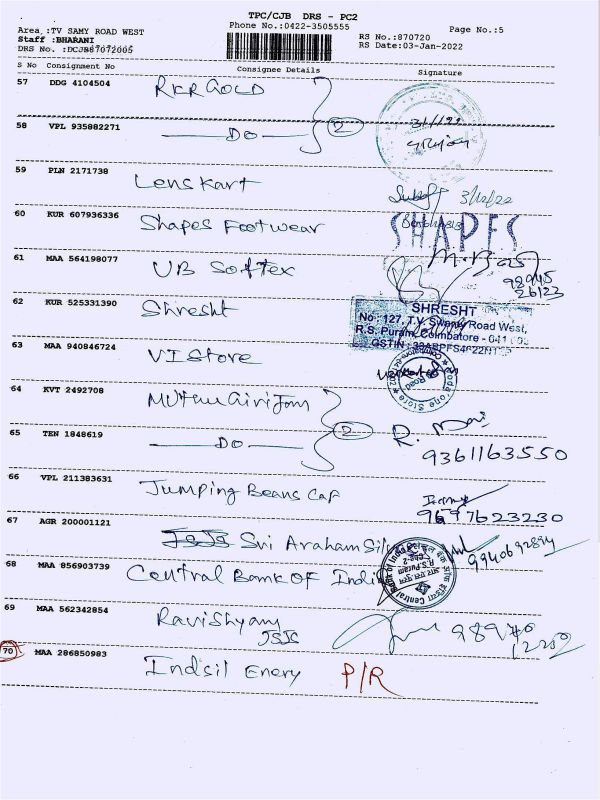 TPC/CJB DRS - PC2
Area :TV SAMY ROAD WEST
Phone No.:0422-3505555
Page No.:5
Staff :BHARANI
RS No.:870720
DRS No. :
RS Date:03-Jan-2022
S No Consignment No Consignee Details Signature
57 DDG 4104504 RKR GOLD
3/1/22
58 VPL 935882271 DO 2
59 PLN 2171738 Lenskart 3/12/22
60 KUR 607936336 Shapes Footwear SHAPES
61 MAA 564198077 UB Softex
98945
26123
62 KUR 525331390 Shresht
SHRESHT
No : 127, T.V. Swamy Road West,
R.S. Puram, Coimbatore - 641 002
63 MAA 940846724 VI Store
64 KVT 2492708
65 TEN 1848619 DO 2
9361163550
66 VPL 211383631 Jumping Beans Caf
9697623230
67 AGR 200001121 Sri Araham Silk
68 MAA 856903739 Central Bank OF India
Central Bank of India
R.S. Puram
69 MAA 562342854 Ravishyam
JSJS
70 MAA 286850983 Indsil Enery P/R